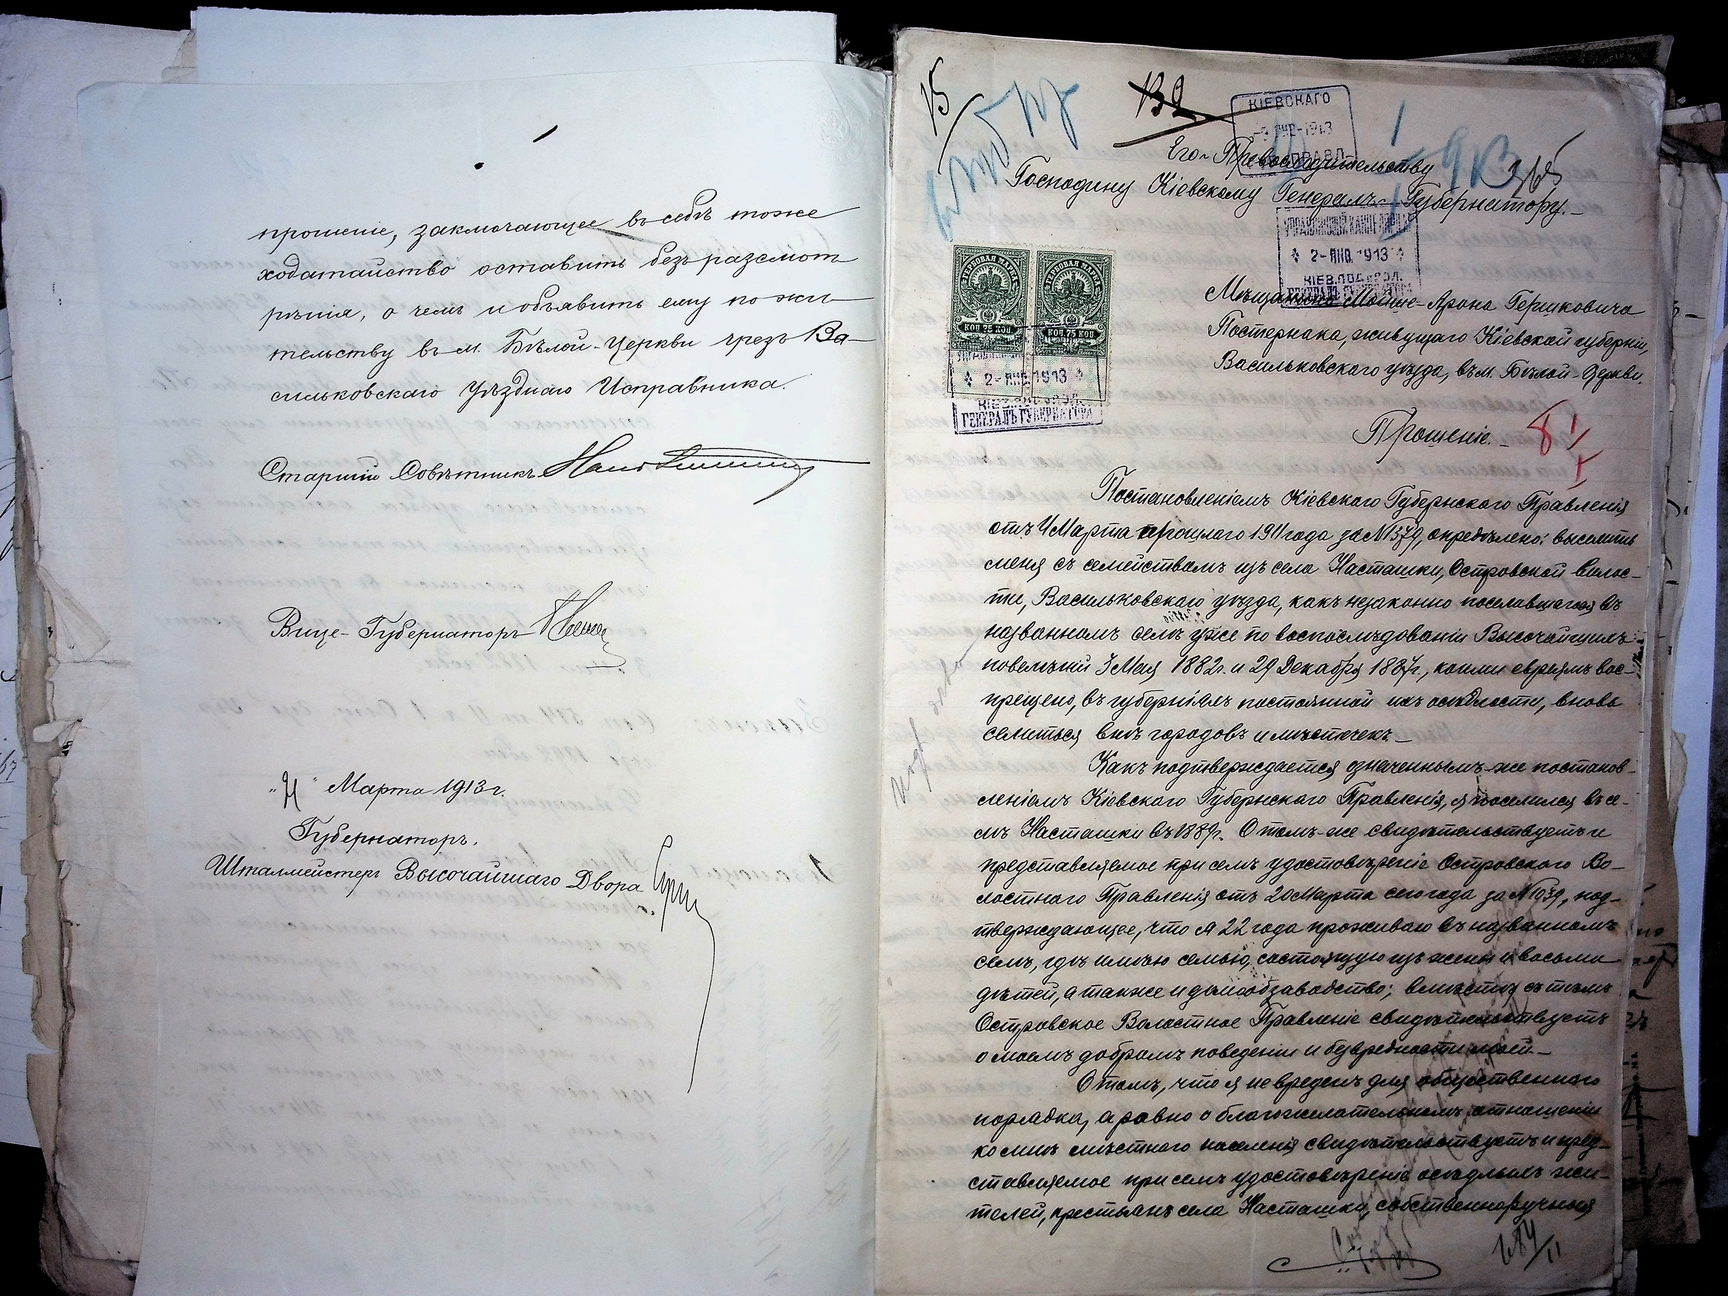 прошеніе, заключающее въ себѣ тоже
ходатайство оставить безъ разсмот
рѣнія, о чемъ и объявить ему по жи-
тельству въ м. Бѣлой-Церкви чрезъ Ва-
сильковскаго Уѣзднаго Исправника.
Старшій Совѣтникъ
Вице-Губернаторъ
Марта 1913 г.
Губернаторъ,
Шталмейстеръ Высочайшаго Двора
15
132
КІЕВСКАГО
Его Превосходительству
Господину Кіевскому Генералъ-Губернатору.
2-ЯНВ.1913
КІЕВ.ПОДОЛ.
ГЕНЕРАЛЪ ГУБЕРНАТОРА
ГЕРБОВАЯ МАРКА
ГЕРБОВАЯ МАРКА
КОП 75 КОП
КОП 75 КОП
2-ЯНВ.1913
ГЕНЕРАЛЪ ГУБЕРНАТОРА
Мѣщанина Мошко-Арона Гершковича
Постернака, живущаго Кіевской губерніи,
Васильковскаго уѣзда, въ м. Бѣлой-Церкви.
Прошеніе.
Постановленіемъ Кіевскаго Губернскаго Правленія
отъ 4 Марта прошлаго 1911 года за № 1579, опредѣлено: выселить
меня съ семействомъ изъ села Насташки, Островской Волос-
ти, Васильковскаго уѣзда, какъ незаконно поселившагося въ
названномъ селѣ уже по воспослѣдованіи Высочайшихъ
повелѣній 3 Мая 1882 г. и 29 Декабря 1887 г., коими евреямъ вос-
прещено, въ губерніяхъ постоянной ихъ осѣдлости, вновь
селиться внѣ городовъ и мѣстечекъ.
Какъ подтверждается означеннымъ-же постанов-
леніемъ Кіевскаго Губернскаго Правленія, я поселился въ се-
лѣ Насташки въ 1889 г. О томъ-же свидѣтельствуетъ и
представляемое при семъ удостовѣреніе Островскаго Во-
лостного Правленія отъ 20 Марта сего года за № 1939, под-
тверждающее, что я 22 года проживаю въ названномъ
селѣ, гдѣ имѣю семью, состоящую изъ жены и восьми
дѣтей, а также и домообзаводство; вмѣстѣ съ тѣмъ
Островское Волостное Правленіе свидѣтельствуетъ
о моемъ добромъ поведеніи и безвредности моей.
О томъ, что я не вреденъ для общественнаго
порядка, а равно о благожелательномъ отношеніи
ко мнѣ мѣстнаго населенія свидѣтельствуетъ и пред-
ставляемое при семъ удостовѣреніе осѣдлыхъ жи-
телей, крестьянъ села Насташки, собственноручныя